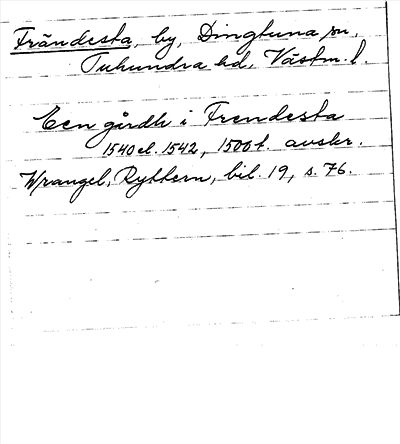 Frändesta, by, Dingtuna sn,
Tuhundra hd, Västm. l.
Een gårdh i Frendesta
1540 el. 1542, 1500 t. avskr.
Wrangel, Ryttern, bil. 19, s. 76.